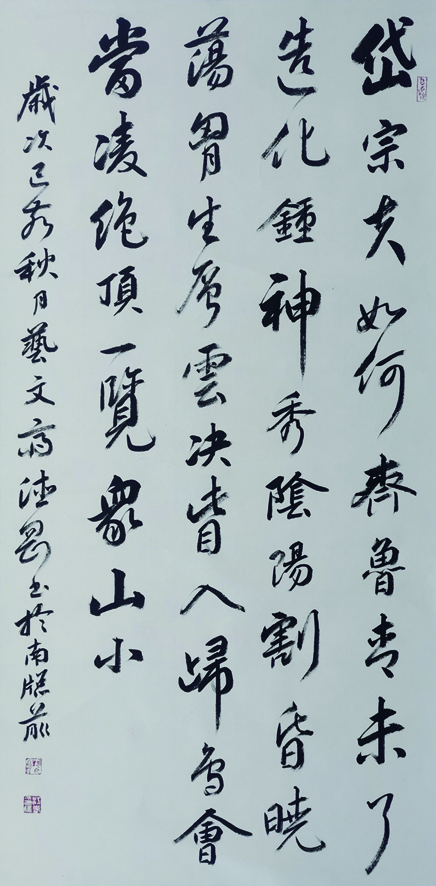 岱宗夫如何齊魯青未了
造化鍾神秀陰陽割昏曉
蕩胷生层雲决眥入歸鳥會
當凌絶頂一覽衆山小
歲次己亥秋月藝文斋德书於南牕前